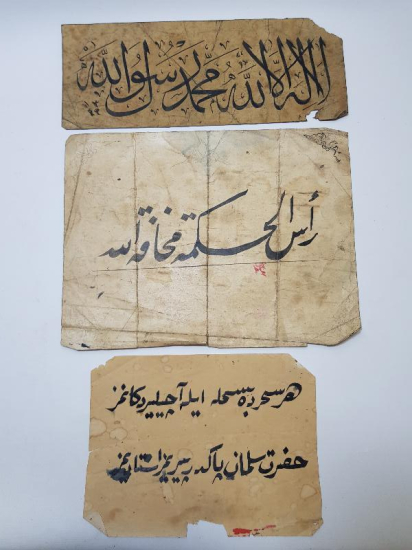 لا اله الا الله محمد رسول الله
رأس الحكمة مخافة الله
هر سحرده بسمله ايله آچيلير دكانمز
حضرت سلمان پاكدر پيريمز استاديمز